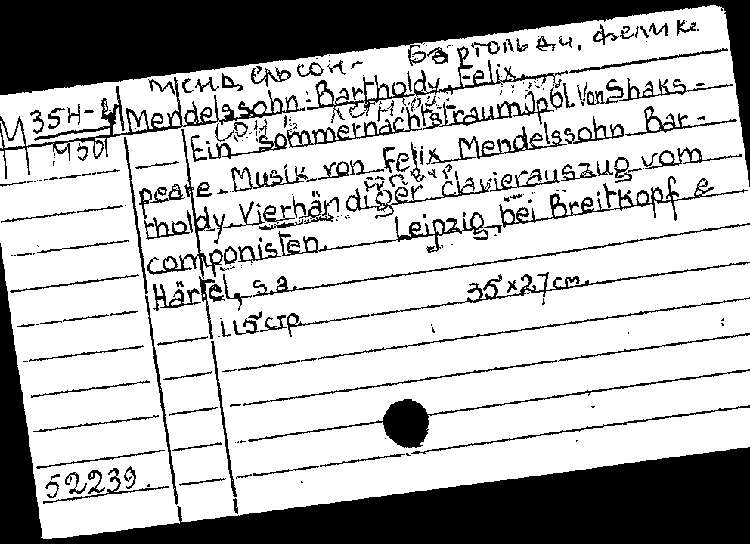 Мендельсон- Бартольди, Феликс
М 35Н-4 Mendelssohn-Bartholdy, Felix.
М501 Ein Sommernachtstraum von Shaks-
peare. Musik von Felix Mendelssohn Bar-
tholdy. Vierhändiger Clavierauszug vom
componisten. Leipzig, bei Breitkopf &
Härtel, s.a.
115 стр. 35×27 cm.
52239.